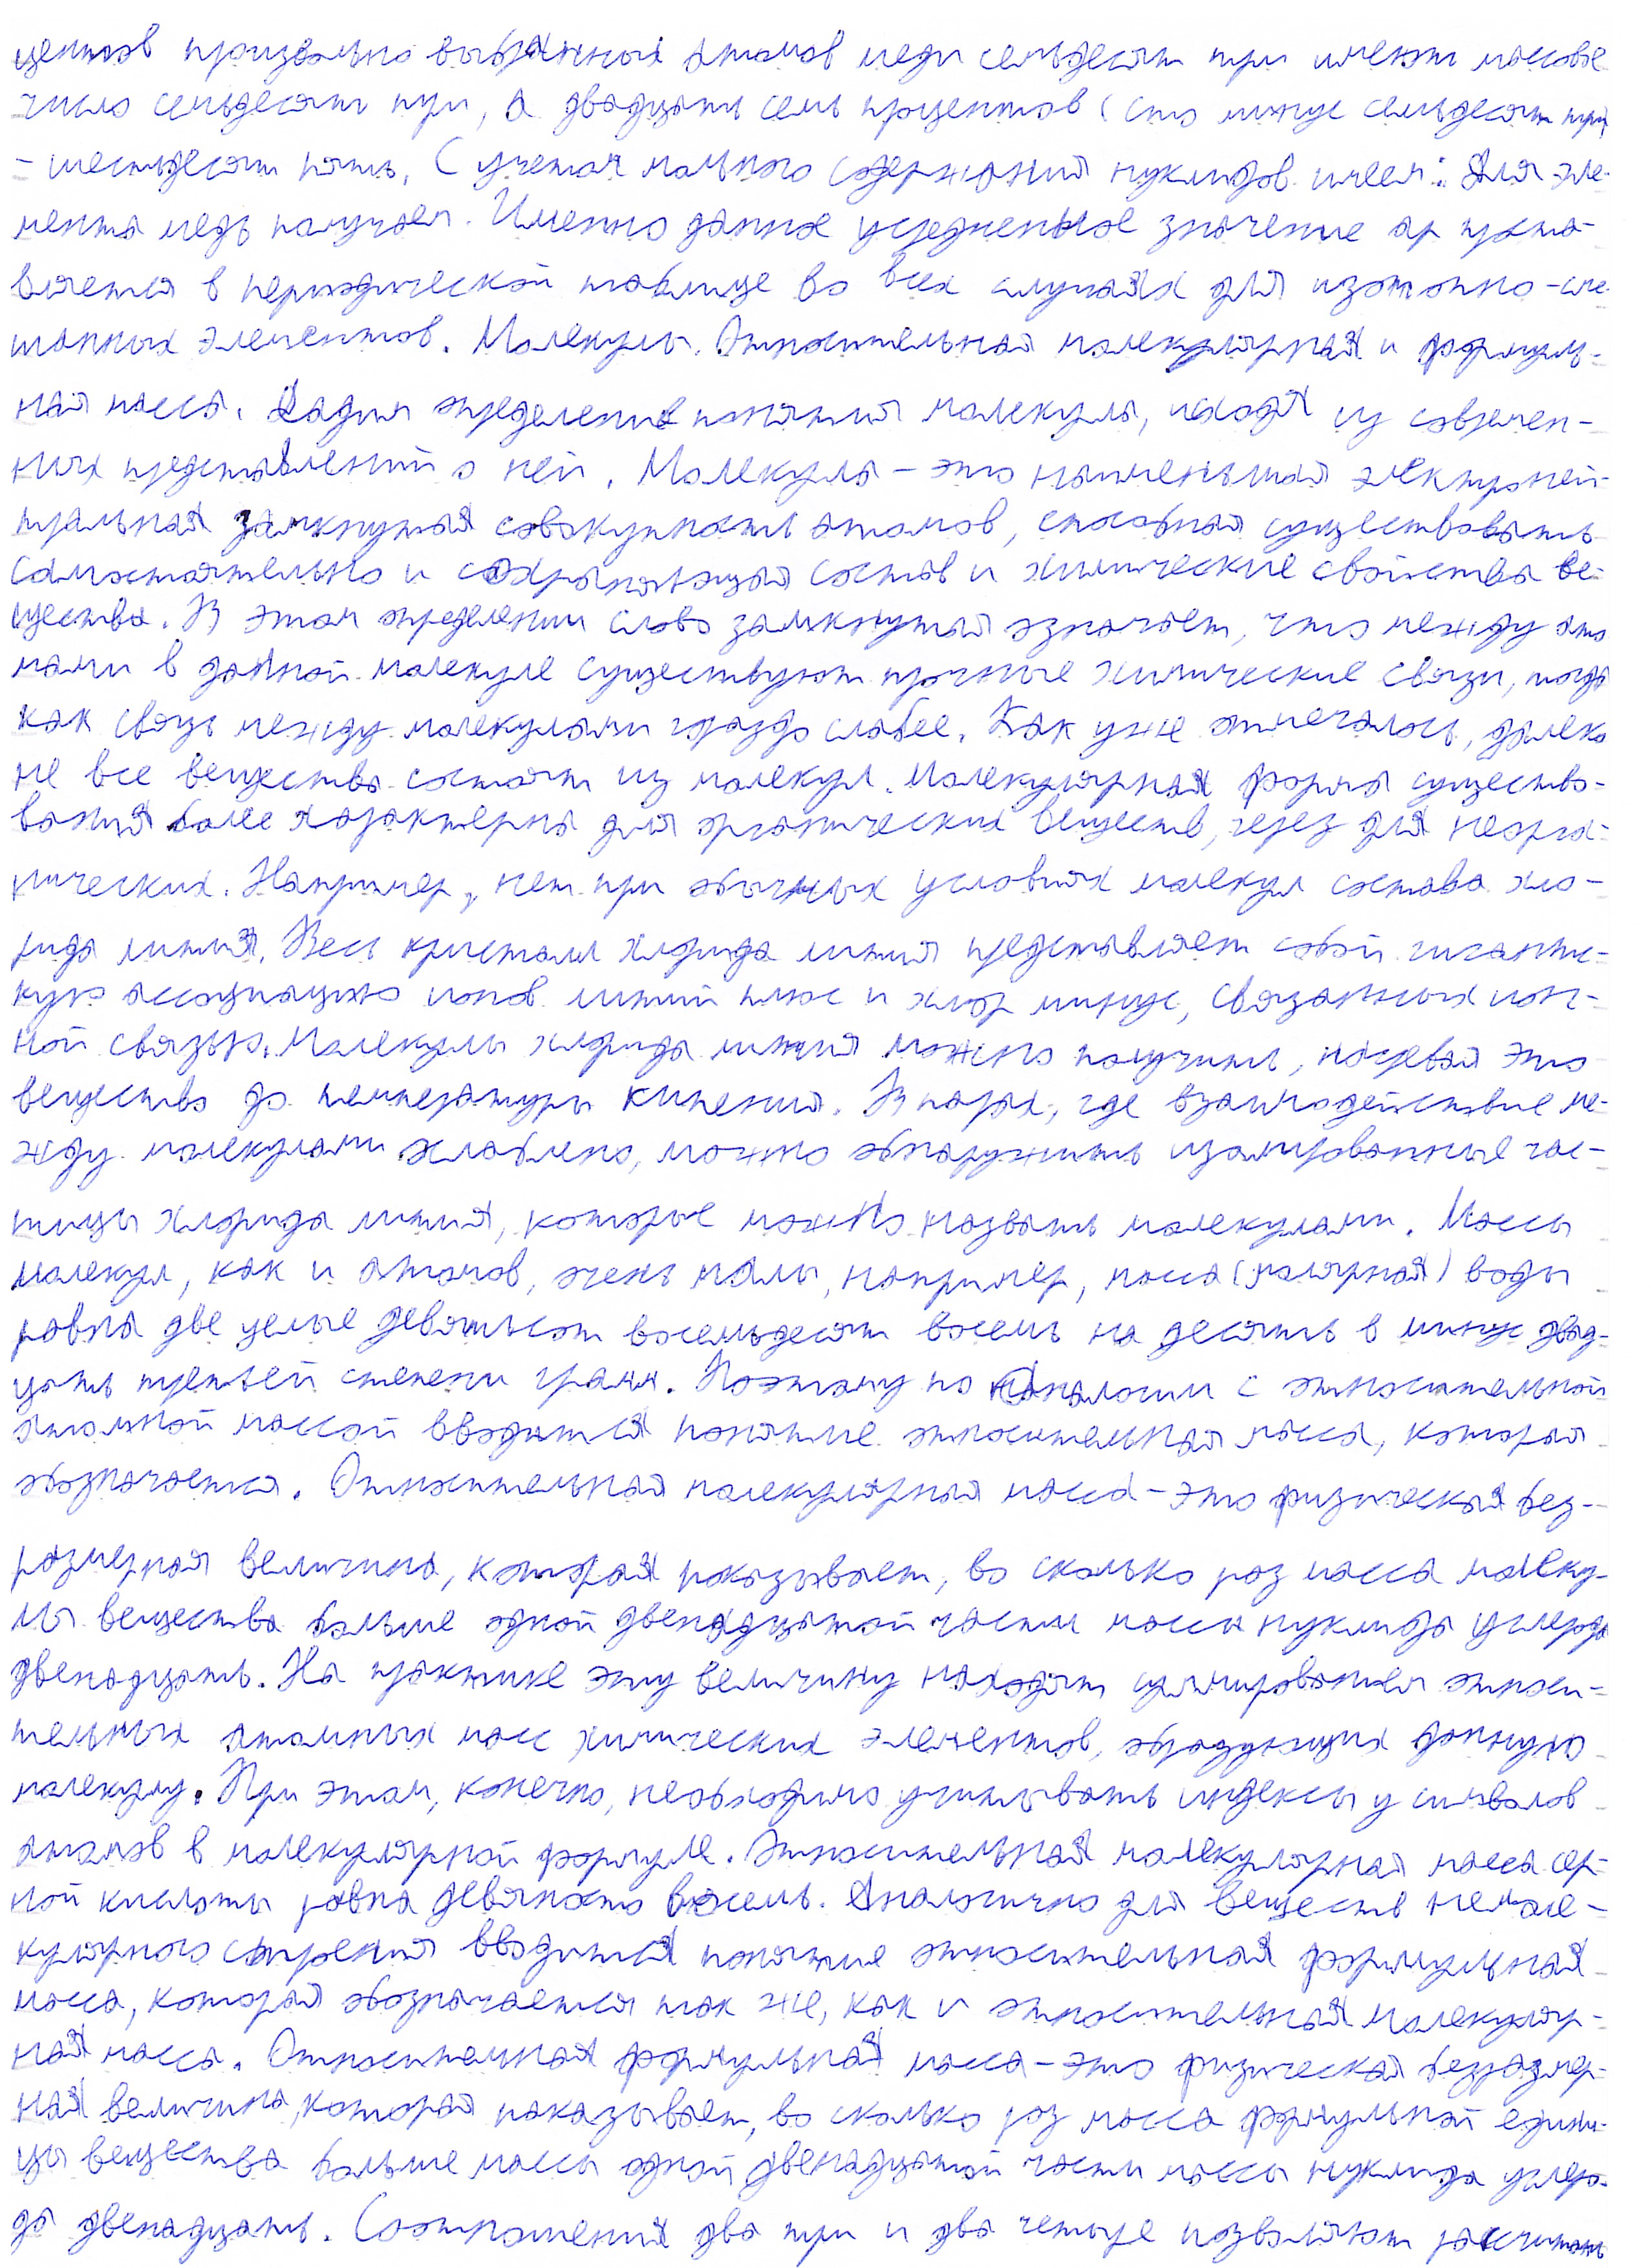 центов произвольно выбранных атомов меди семьдесят три имеют массовое
число семьдесят три, а двадцать семь процентов (сто минус семьдесят три)
- шестьдесят пять. С учетом мольного содержания нуклидов имеем: Для эле-
мента медь получаем. Именно данное усредненное значение ар проста-
вляется в периодической таблице во всех случаях для изотопно-сме-
шанных элементов. Молекулы. Относительная молекулярная и формуль-
ная масса. Дадим определение понятия молекулы, исходя из современ-
ных представлений о ней. Молекула - это наименьшая электроней-
тральная замкнутая совокупность атомов, способная существовать
самостоятельно и сохраняющая состав и химические свойства ве-
щества. В этом определении слово замкнутая означает, что между ато
мами в данной молекуле существуют прочные химические связи, тогда
как связь между молекулами гораздо слабее. Как уже отмечалось, далеко
не все вещества состоят из молекул. Молекулярная форма существо-
вания более характерна для органических веществ, через для неорга-
нических. Например, нет при обычных условиях молекул состава хло-
рида лития. Весь кристалл хлорида лития представляет собой гигантс-
кую ассоциацию ионов литий плюс и хлор минус, связанных ион-
ной связью. Молекулы хлорида лития можно получить, нагревая это
вещество до температуры кипения. В парах, где взаимодействие ме-
жду молекулами ослаблено, можно обнаружить изолированные час-
тицы хлорида лития, которые можно назвать молекулами. Массы
молекул, как и атомов, очень малы, например, масса (молярная) воды
равна две целые девятьсот восемьдесят восемь на десять в минус двад-
цать третьей степени грамм. Поэтому по аналогии с относительной
атомной массой вводится понятие относительная масса, которая
обозначается. Относительная молекулярная масса - это физическая без-
размерная величина, которая показывает, во сколько раз масса молеку-
лы вещества больше одной двенадцатой части массы нуклида углерода
двенадцать. На практике эту величину находят суммированием относи-
тельных атомных масс химических элементов, образующих данную
молекулу. При этом, конечно, необходимо учитывать индексы у символов
атомов в молекулярной формуле. Относительная молекулярная масса сер-
ной кислоты равна девяносто восемь. Аналогично для веществ немоле-
кулярного строения вводится понятие относительная формульная
масса, которая обозначается так же, как и относительная молекуляр-
ная масса. Относительная формульная масса - это физическая безразмер-
ная величина, которая показывает, во сколько раз масса формульной едини-
цы вещества больше массы одной двенадцатой части массы нуклида углеро-
да двенадцать. Соотношения два три и два четыре позволяют рассчитать